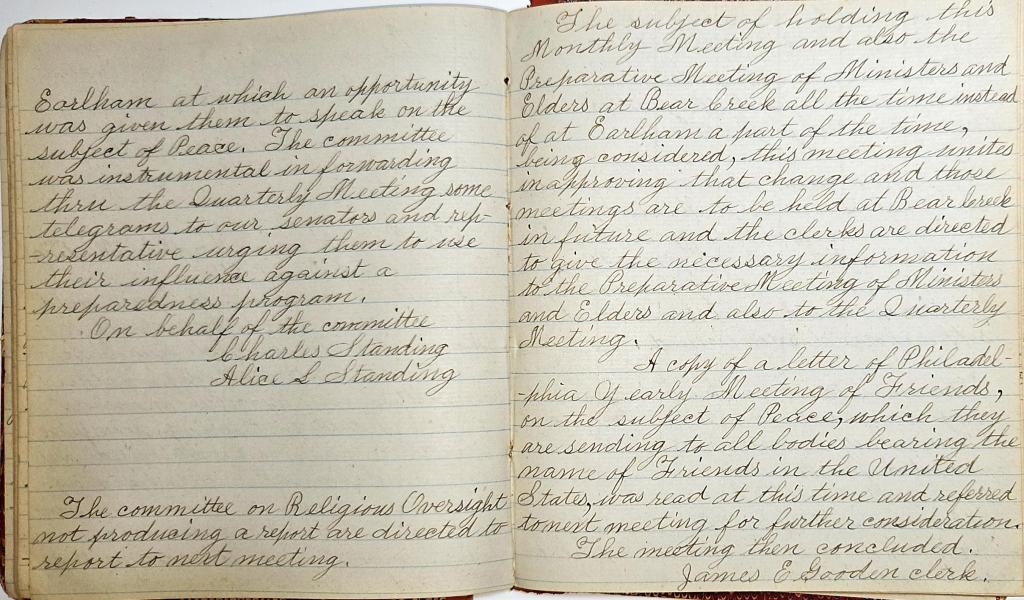 Earlham at which an opportunity
was given them to speak on the
subject of Peace. The committee
was instrumental in forwarding
thru the Quarterly Meeting some
telegrams to our senators and rep-
-resentative urging them to use
their influence against a
preparedness program.
On behalf of the committee
Charles Standing
Alice L Standing
The committee on Religious Oversight
not producing a report are directed to
report to next meeting.
The subject of holding this
Monthly Meeting and also the
Preparative Meeting of Ministers and
Elders at Bear Creek all the time instead
of at Earlham a part of the time,
being considered, this meeting unites
in approving that change and those
meetings are to be held at Bear Creek
in future and the clerks are directed
to give the necessary information
to the Preparative Meeting of Ministers
and Elders and also to the Quarterly
Meeting.
A copy of a letter of Philadel-
-phia Yearly Meeting of Friends,
on the subject of Peace, which they
are sending to all bodies bearing the
name of Friends in the United
States, was read at this time and referred
to next meeting for further consideration.
The meeting then concluded.
James E Gooden clerk.